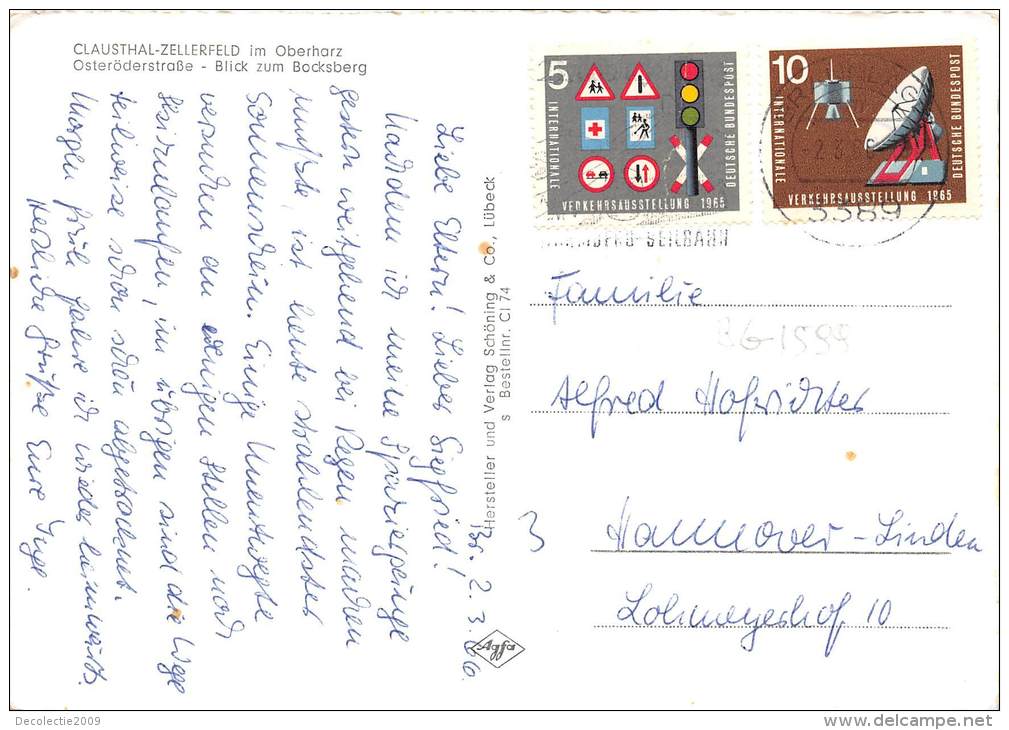 CLAUSTHAL-ZELLERFELD im Oberharz
Osteröderstraße - Blick zum Bocksberg
Br. 2. 3. 66.
Liebe Eltern! Lieber Siegfried!
Nachdem ich meine Spaziergänge
gestern weitgehend bei Regen machen
mußte, ist heute strahlendster
Sonnenschein. Einige Unentwegte
versuchen an einigen Stellen noch
Skizulaufen, im übrigen sind die Wege
teilweise schon schön abgetrocknet.
Morgen früh fahre ich wieder heimwärts.
Herzliche Grüße Eure Inge.
Hersteller und Verlag Schöning & Co., Lübeck
s Bestellnr. Cl 74
Agfa
5
INTERNATIONALE
VERKEHRSAUSSTELLUNG 1965
DEUTSCHE BUNDESPOST
10
INTERNATIONALE
VERKEHRSAUSSTELLUNG 1965
DEUTSCHE BUNDESPOST
3389
SEILBAHN
Familie
BG-1599
Alfred Hofrichter
3 Hannover-Linden
Lohmeyerhof 10
Decolectie2009
delcampe.net